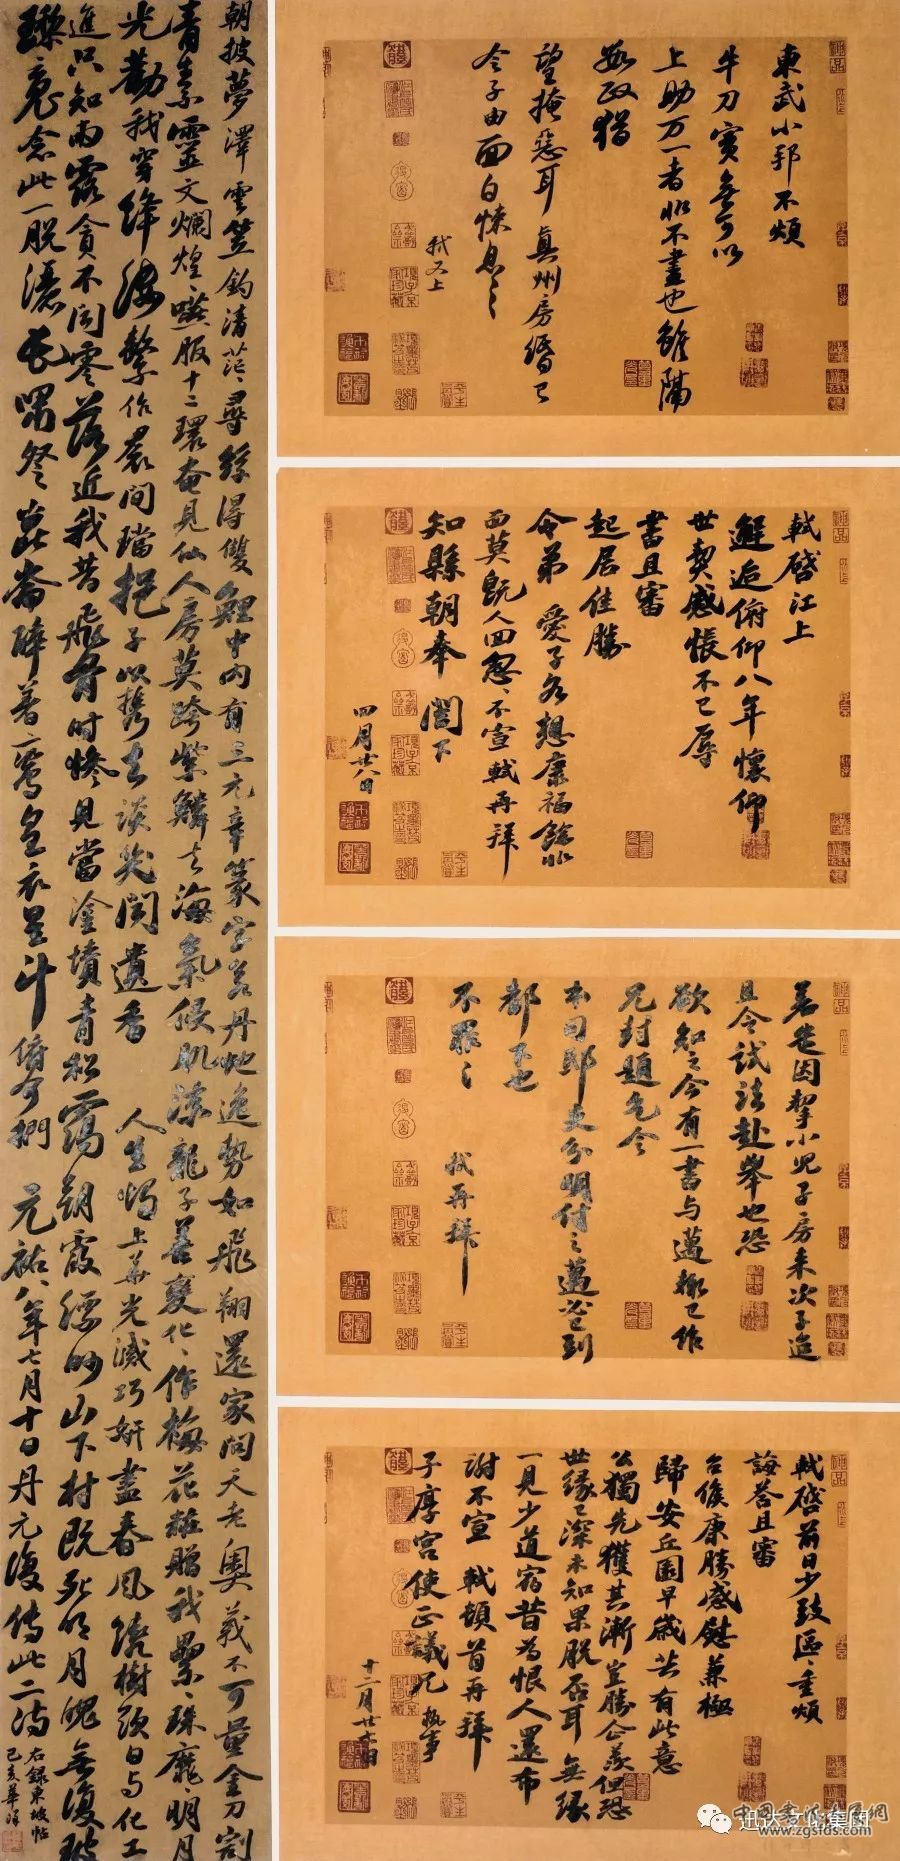 朝披夢澤雲笠釣清茫〻尋絲得雙鯉中內有三元章篆字若丹虵逸勢如飛翔還家問天老奧義不可量金刀割
青素靈文爛煌〻嚥服十二環奄見仙人房莫跨紫鱗去海氣侵肌涼龍子善變化〻作梅花粧贈我纍〻珠靡〻明月
光勸我穿絳縷繫作裙間璫挹子以攜去談笑聞遺香 人生燭上華光滅巧妍盡春風繞樹頭日與化工
進只知雨露貪不聞零落近我昔飛骨時慘見當塗墳青松靄朝霞縹眇山下村既死明月魄無復玻
瓈魂念此一脫灑長嘯祭崑崙醉著鸞皇衣星斗俯可捫 元祐八年七月十日丹元復傳此二詩
右錄東坡帖
己亥華
東武小邦不煩
牛刀實無可以
上助万一者非不盡也雖隔
數政猶
望掩惡耳真州房緡已
令子由面白悚息〻
軾又上
軾啓江上
邂逅俯仰八年懷仰
世契感悵不已辱
書且審
起居佳勝
令弟 愛子各想康福餘非
面莫既人回怱〻不宣軾再拜
知縣朝奉閣下
四月廿八日
若告因挐小兒子房來次子迨
且令試法赴舉也恐
欲知之今有一書与邁輒已作
兄封題乞令
本司郵吏分明付之邁必已到
都下也
不罪〻
軾再拜
軾啓前日少致區〻重煩
誨答且審
台候康勝感慰兼極
歸安丘園早歲共有此意
公獨先獲其漸豈勝企羨但恐
世緣已深未知果脫否耳無緣
一見少道宿昔為恨人還布
謝不宣 軾頓首再拜
子厚宮使正議兄執事
十二月廿七日
迅达文化集团
中国书法发展网
www.zgsfds.com